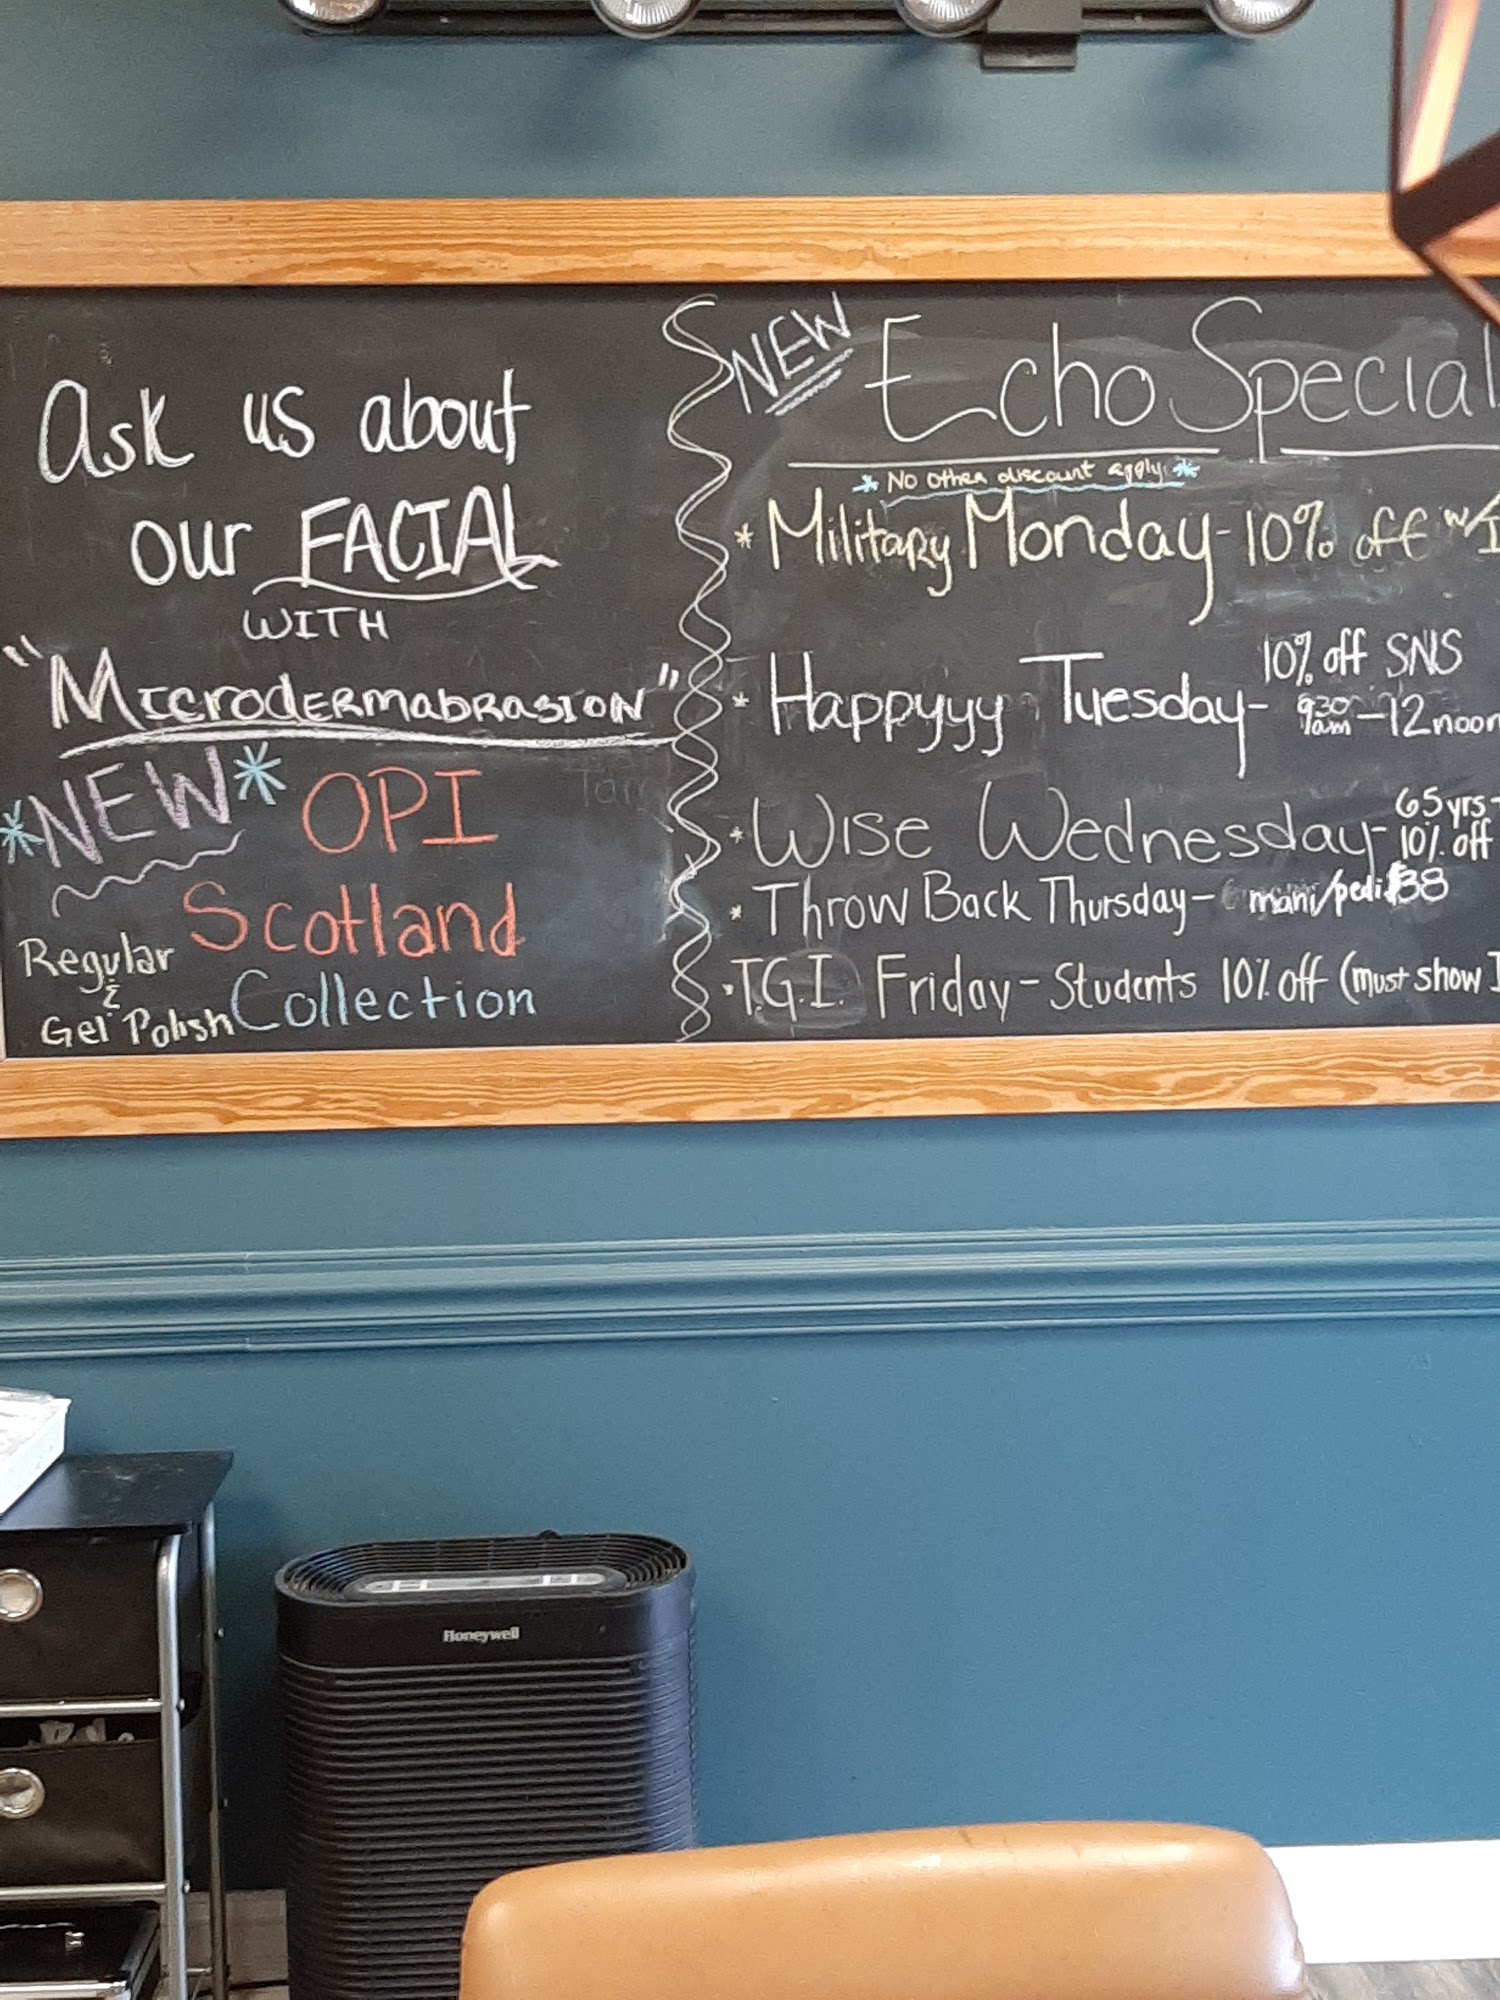 Ask us about
our FACIAL
WITH
"Microdermabrasion"
*NEW* OPI
Scotland
Regular
&
Gel Polish Collection
NEW Echo Special
* No other discount apply *
* Military Monday - 10% off w/I
* Happyyyy Tuesday - 10% off SNS
9:30 am - 12 noon
* Wise Wednesday - 65 yrs
10% off
* Throw Back Thursday - mani/pedi $38
· T.G.I. Friday - Students 10% off (must show I
Honeywell